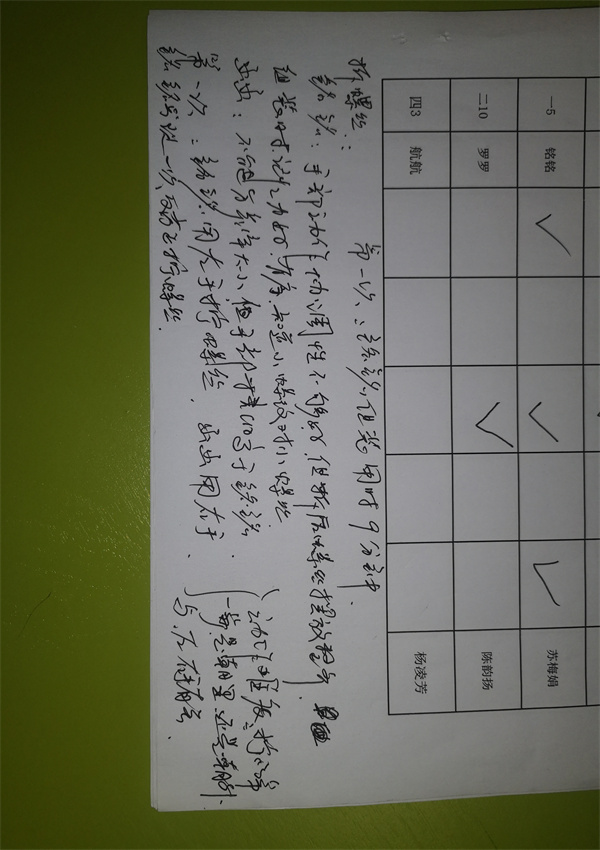 一5 铭铭 ✓ ✓ ✓ 苏梅娟
二10 罗罗 ✓ 陈韵扬
四3 航航 杨凌芳
拆螺丝: 第一次:铭铭组装用时9分钟.
铭铭:手部动作协调性不够好,但拆后螺丝摆放整齐
组装时,记忆力好,有序,知道小螺纹对小螺丝.
函函:不能分辨大小 但手部 高于铭铭.
第一次:铭铭用左手拧螺丝, 函函用右手
铭铭出现一次反方正拧螺丝.
动作 : 拧的第
一步是朝里,还是朝外.
与左右手有关.